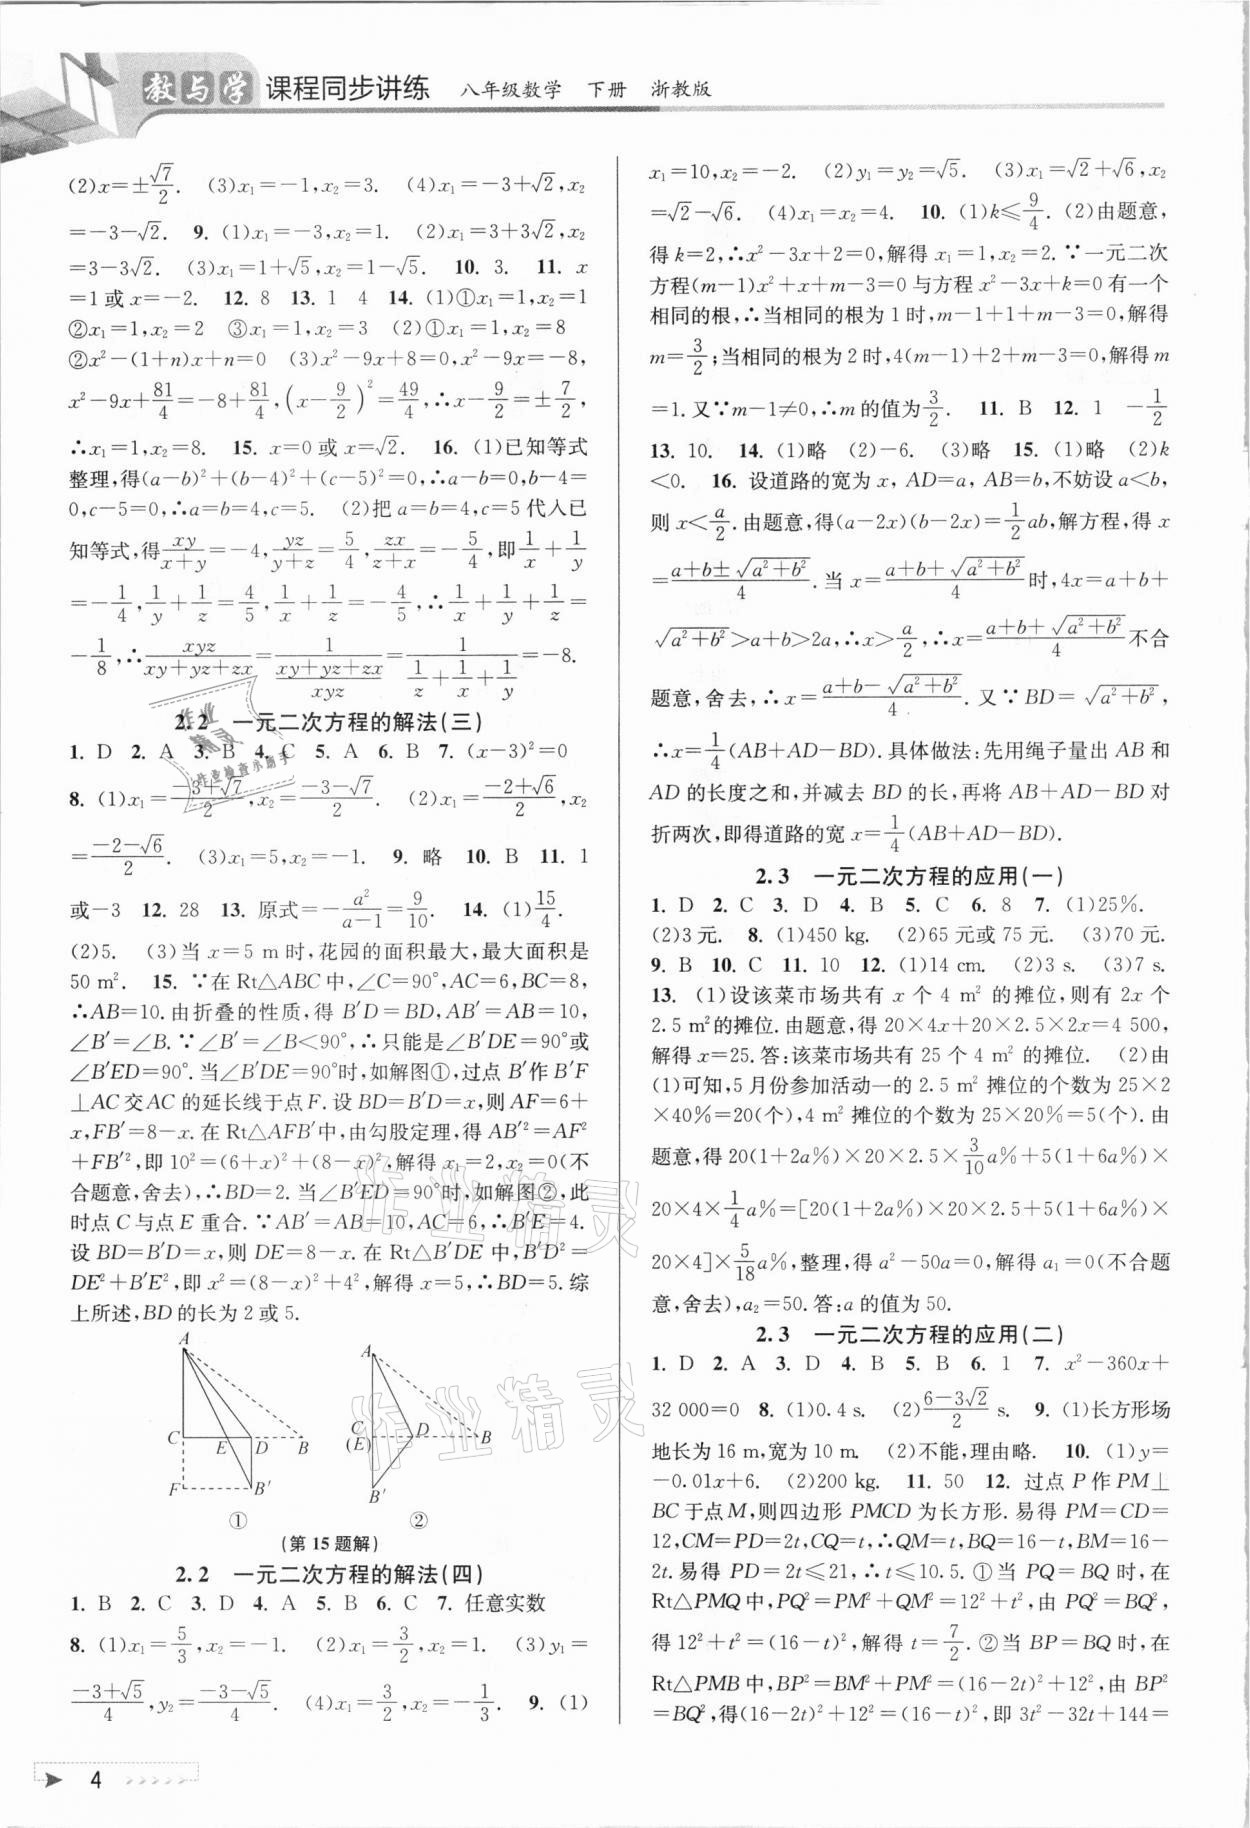 教与学 课程同步讲练 八年级数学 下册 浙教版
(2)x=±√7/2. (3)x₁=-1,x₂=3. (4)x₁=-3+√2,x₂
=-3-√2. 9. (1)x₁=-3,x₂=1. (2)x₁=3+3√2,x₂
=3-3√2. (3)x₁=1+√5,x₂=1-√5. 10. 3. 11. x
=1或x=-2. 12. 8 13. 1 4 14. (1)①x₁=1,x₂=1
②x₁=1,x₂=2 ③x₁=1,x₂=3 (2)①x₁=1,x₂=8
②x²-(1+n)x+n=0 (3)x²-9x+8=0,x²-9x=-8,
x²-9x+81/4=-8+81/4,(x-9/2)²=49/4,∴x-9/2=±7/2,
∴x₁=1,x₂=8. 15. x=0或x=√2. 16. (1)已知等式
整理,得(a-b)²+(b-4)²+(c-5)²=0,∴a-b=0,b-4=
0,c-5=0,∴a=b=4,c=5. (2)把a=b=4,c=5代入已
知等式,得xy/(x+y)=-4,yz/(y+z)=5/4,zx/(z+x)=-5/4,即1/x+1/y
=-1/4,1/y+1/z=4/5,1/x+1/z=-4/5,∴1/x+1/y+1/z=
-1/8,∴xyz/(xy+yz+zx)=1/((xy+yz+zx)/xyz)=1/(1/z+1/x+1/y)=-8.
2.2 一元二次方程的解法(三)
1. D 2. A 3. B 4. C 5. A 6. B 7. (x-3)²=0
8. (1)x₁=(-3+√7)/2,x₂=(-3-√7)/2. (2)x₁=(-2+√6)/2,x₂
=(-2-√6)/2. (3)x₁=5,x₂=-1. 9. 略 10. B 11. 1
或-3 12. 28 13. 原式=-a²/(a-1)=9/10. 14. (1)15/4.
(2)5. (3)当x=5 m时,花园的面积最大,最大面积是
50 m². 15. ∵在Rt△ABC中,∠C=90°,AC=6,BC=8,
∴AB=10.由折叠的性质,得B′D=BD,AB′=AB=10,
∠B′=∠B.∵∠B′=∠B<90°,∴只能是∠B′DE=90°或
∠B′ED=90°.当∠B′DE=90°时,如解图①,过点B′作B′F
⊥AC交AC的延长线于点F.设BD=B′D=x,则AF=6+
x,FB′=8-x.在Rt△AFB′中,由勾股定理,得AB′²=AF²
+FB′²,即10²=(6+x)²+(8-x)²,解得x₁=2,x₂=0(不
合题意,舍去),∴BD=2.当∠B′ED=90°时,如解图②,此
时点C与点E重合.∵AB′=AB=10,AC=6,∴B′E=4.
设BD=B′D=x,则DE=8-x.在Rt△B′DE中,B′D²=
DE²+B′E²,即x²=(8-x)²+4²,解得x=5,∴BD=5.综
上所述,BD的长为2或5.
A C E D B F B′ ①
A C (E) D B B′ ②
(第15题解)
2.2 一元二次方程的解法(四)
1. B 2. C 3. D 4. A 5. B 6. C 7. 任意实数
8. (1)x₁=5/3,x₂=-1. (2)x₁=3/2,x₂=1. (3)y₁=
(-3+√5)/4,y₂=(-3-√5)/4. (4)x₁=3/2,x₂=-1/3. 9. (1)
x₁=10,x₂=-2. (2)y₁=y₂=√5. (3)x₁=√2+√6,x₂
=√2-√6. (4)x₁=x₂=4. 10. (1)k≤9/4. (2)由题意,
得k=2,∴x²-3x+2=0,解得x₁=1,x₂=2.∵一元二次
方程(m-1)x²+x+m-3=0与方程x²-3x+k=0有一个
相同的根,∴当相同的根为1时,m-1+1+m-3=0,解得
m=3/2;当相同的根为2时,4(m-1)+2+m-3=0,解得m
=1.又∵m-1≠0,∴m的值为3/2. 11. B 12. 1 -1/2
13. 10. 14. (1)略 (2)-6. (3)略 15. (1)略 (2)k
<0. 16. 设道路的宽为x, AD=a, AB=b,不妨设a<b,
则x<a/2.由题意,得(a-2x)(b-2x)=1/2ab,解方程,得x
=(a+b±√(a²+b²))/4.当x=(a+b+√(a²+b²))/4时,4x=a+b+
√(a²+b²)>a+b>2a,∴x>a/2,∴x=(a+b+√(a²+b²))/4不合
题意,舍去,∴x=(a+b-√(a²+b²))/4.又∵BD=√(a²+b²),
∴x=1/4(AB+AD-BD).具体做法:先用绳子量出AB和
AD的长度之和,并减去BD的长,再将AB+AD-BD对
折两次,即得道路的宽x=1/4(AB+AD-BD).
2.3 一元二次方程的应用(一)
1. D 2. C 3. D 4. B 5. C 6. 8 7. (1)25%.
(2)3元. 8. (1)450 kg. (2)65元或75元. (3)70元.
9. B 10. C 11. 10 12. (1)14 cm. (2)3 s. (3)7 s.
13. (1)设该菜市场共有x个4 m²的摊位,则有2x个
2.5 m²的摊位.由题意,得20×4x+20×2.5×2x=4 500,
解得x=25.答:该菜市场共有25个4 m²的摊位. (2)由
(1)可知,5月份参加活动一的2.5 m²摊位的个数为25×2
×40%=20(个),4 m²摊位的个数为25×20%=5(个).由
题意,得20(1+2a%)×20×2.5×3/10a%+5(1+6a%)×
20×4×1/4a%=[20(1+2a%)×20×2.5+5(1+6a%)×
20×4]×5/18a%,整理,得a²-50a=0,解得a₁=0(不合题
意,舍去),a₂=50.答:a的值为50.
2.3 一元二次方程的应用(二)
1. D 2. A 3. D 4. B 5. B 6. 1 7. x²-360x+
32 000=0 8. (1)0.4 s. (2)(6-3√2)/2 s. 9. (1)长方形场
地长为16 m,宽为10 m. (2)不能,理由略. 10. (1)y=
-0.01x+6. (2)200 kg. 11. 50 12. 过点P作PM⊥
BC于点M,则四边形PMCD为长方形.易得PM=CD=
12,CM=PD=2t,CQ=t,∴QM=t,BQ=16-t,BM=16-
2t.易得PD=2t≤21,∴t≤10.5.①当PQ=BQ时,在
Rt△PMQ中,PQ²=PM²+QM²=12²+t²,由PQ²=BQ²,
得12²+t²=(16-t)²,解得t=7/2.②当BP=BQ时,在
Rt△PMB中,BP²=BM²+PM²=(16-2t)²+12²,由BP²
=BQ²,得(16-2t)²+12²=(16-t)²,即3t²-32t+144=
4
作业精灵
作业检查小助手
作业精灵
作业精灵